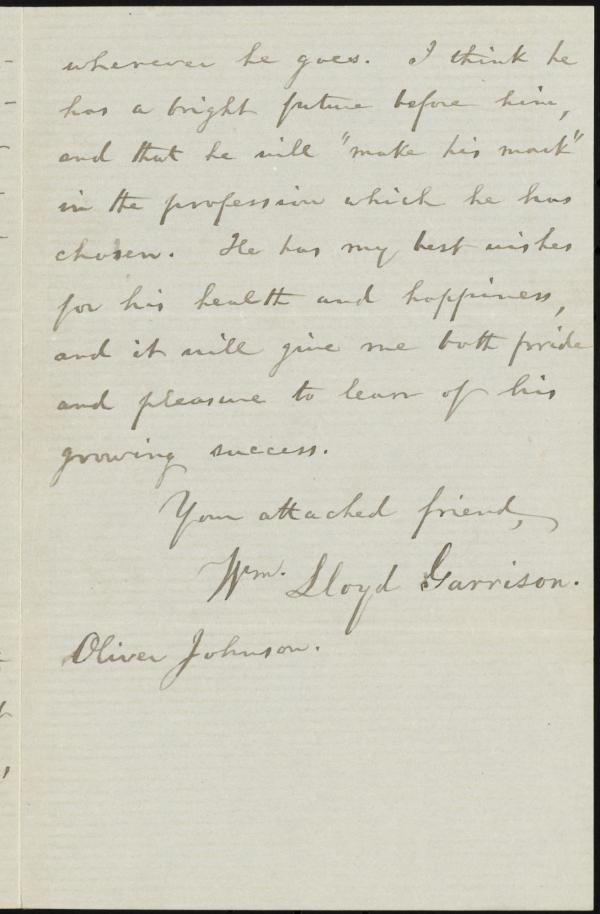 wherever he goes. I think he
has a bright future before him,
and that he will "make his mark"
in the profession which he has
chosen. He has my best wishes
for his health and happiness,
and it will give me both pride
and pleasure to learn of his
growing success.
Your attached friend,
Wm. Lloyd Garrison.
Oliver Johnson.